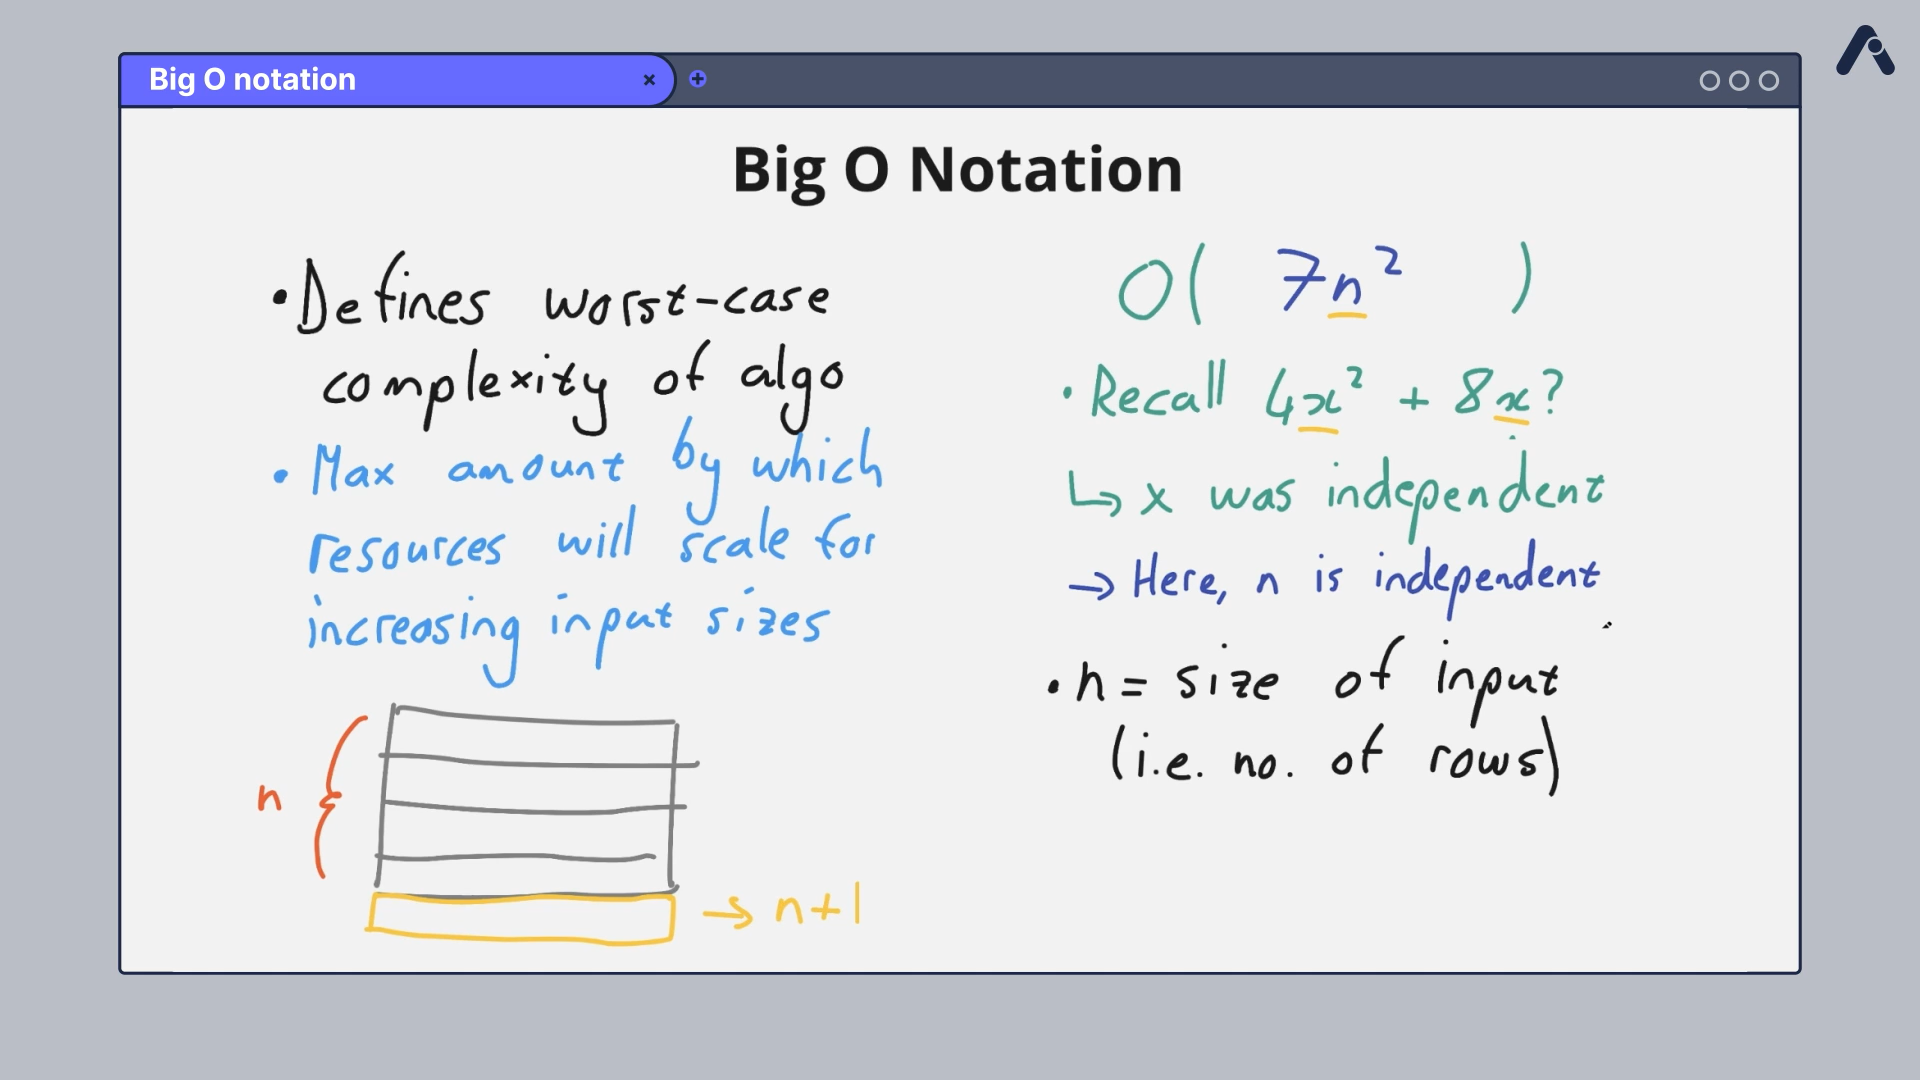 Big O notation
Big O Notation
• Defines worst-case
complexity of algo
• Max amount by which
resources will scale for
increasing input sizes
n
→ n+1
O( 7n² )
• Recall 4x² + 8x?
↳ x was independent
→ Here, n is independent
• n = size of input
(i.e. no. of rows)